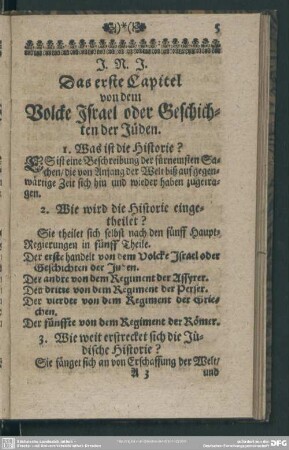 5
J. N. J.
Das erste Capitel
von dem
Volcke Israel oder Geschich-
ten der Jüden.
1. Was ist die Historie?
ES ist eine Beschreibung der fürnemsten Sa-
chen/ die von Anfang der Welt biß auf gegen-
wärtige Zeit sich hin und wieder haben zugetra-
gen.
2. Wie wird die Historie einge-
theilet?
Sie theilet sich selbst nach den fünff Haupt-
Regierungen in fünff Theile.
Der erste handelt von dem Volcke Israel oder
Geschichten der Juden.
Der andre von dem Regiment der Assyrer.
Der dritte von dem Regiment der Perser.
Der vierdte von dem Regiment der Grie-
chen.
Der fünffte von dem Regiment der Römer.
3. Wie weit erstrecket sich die Jü-
dische Historie?
Sie fänget sich an von Erschaffung der Welt/
A 3 und
DFG